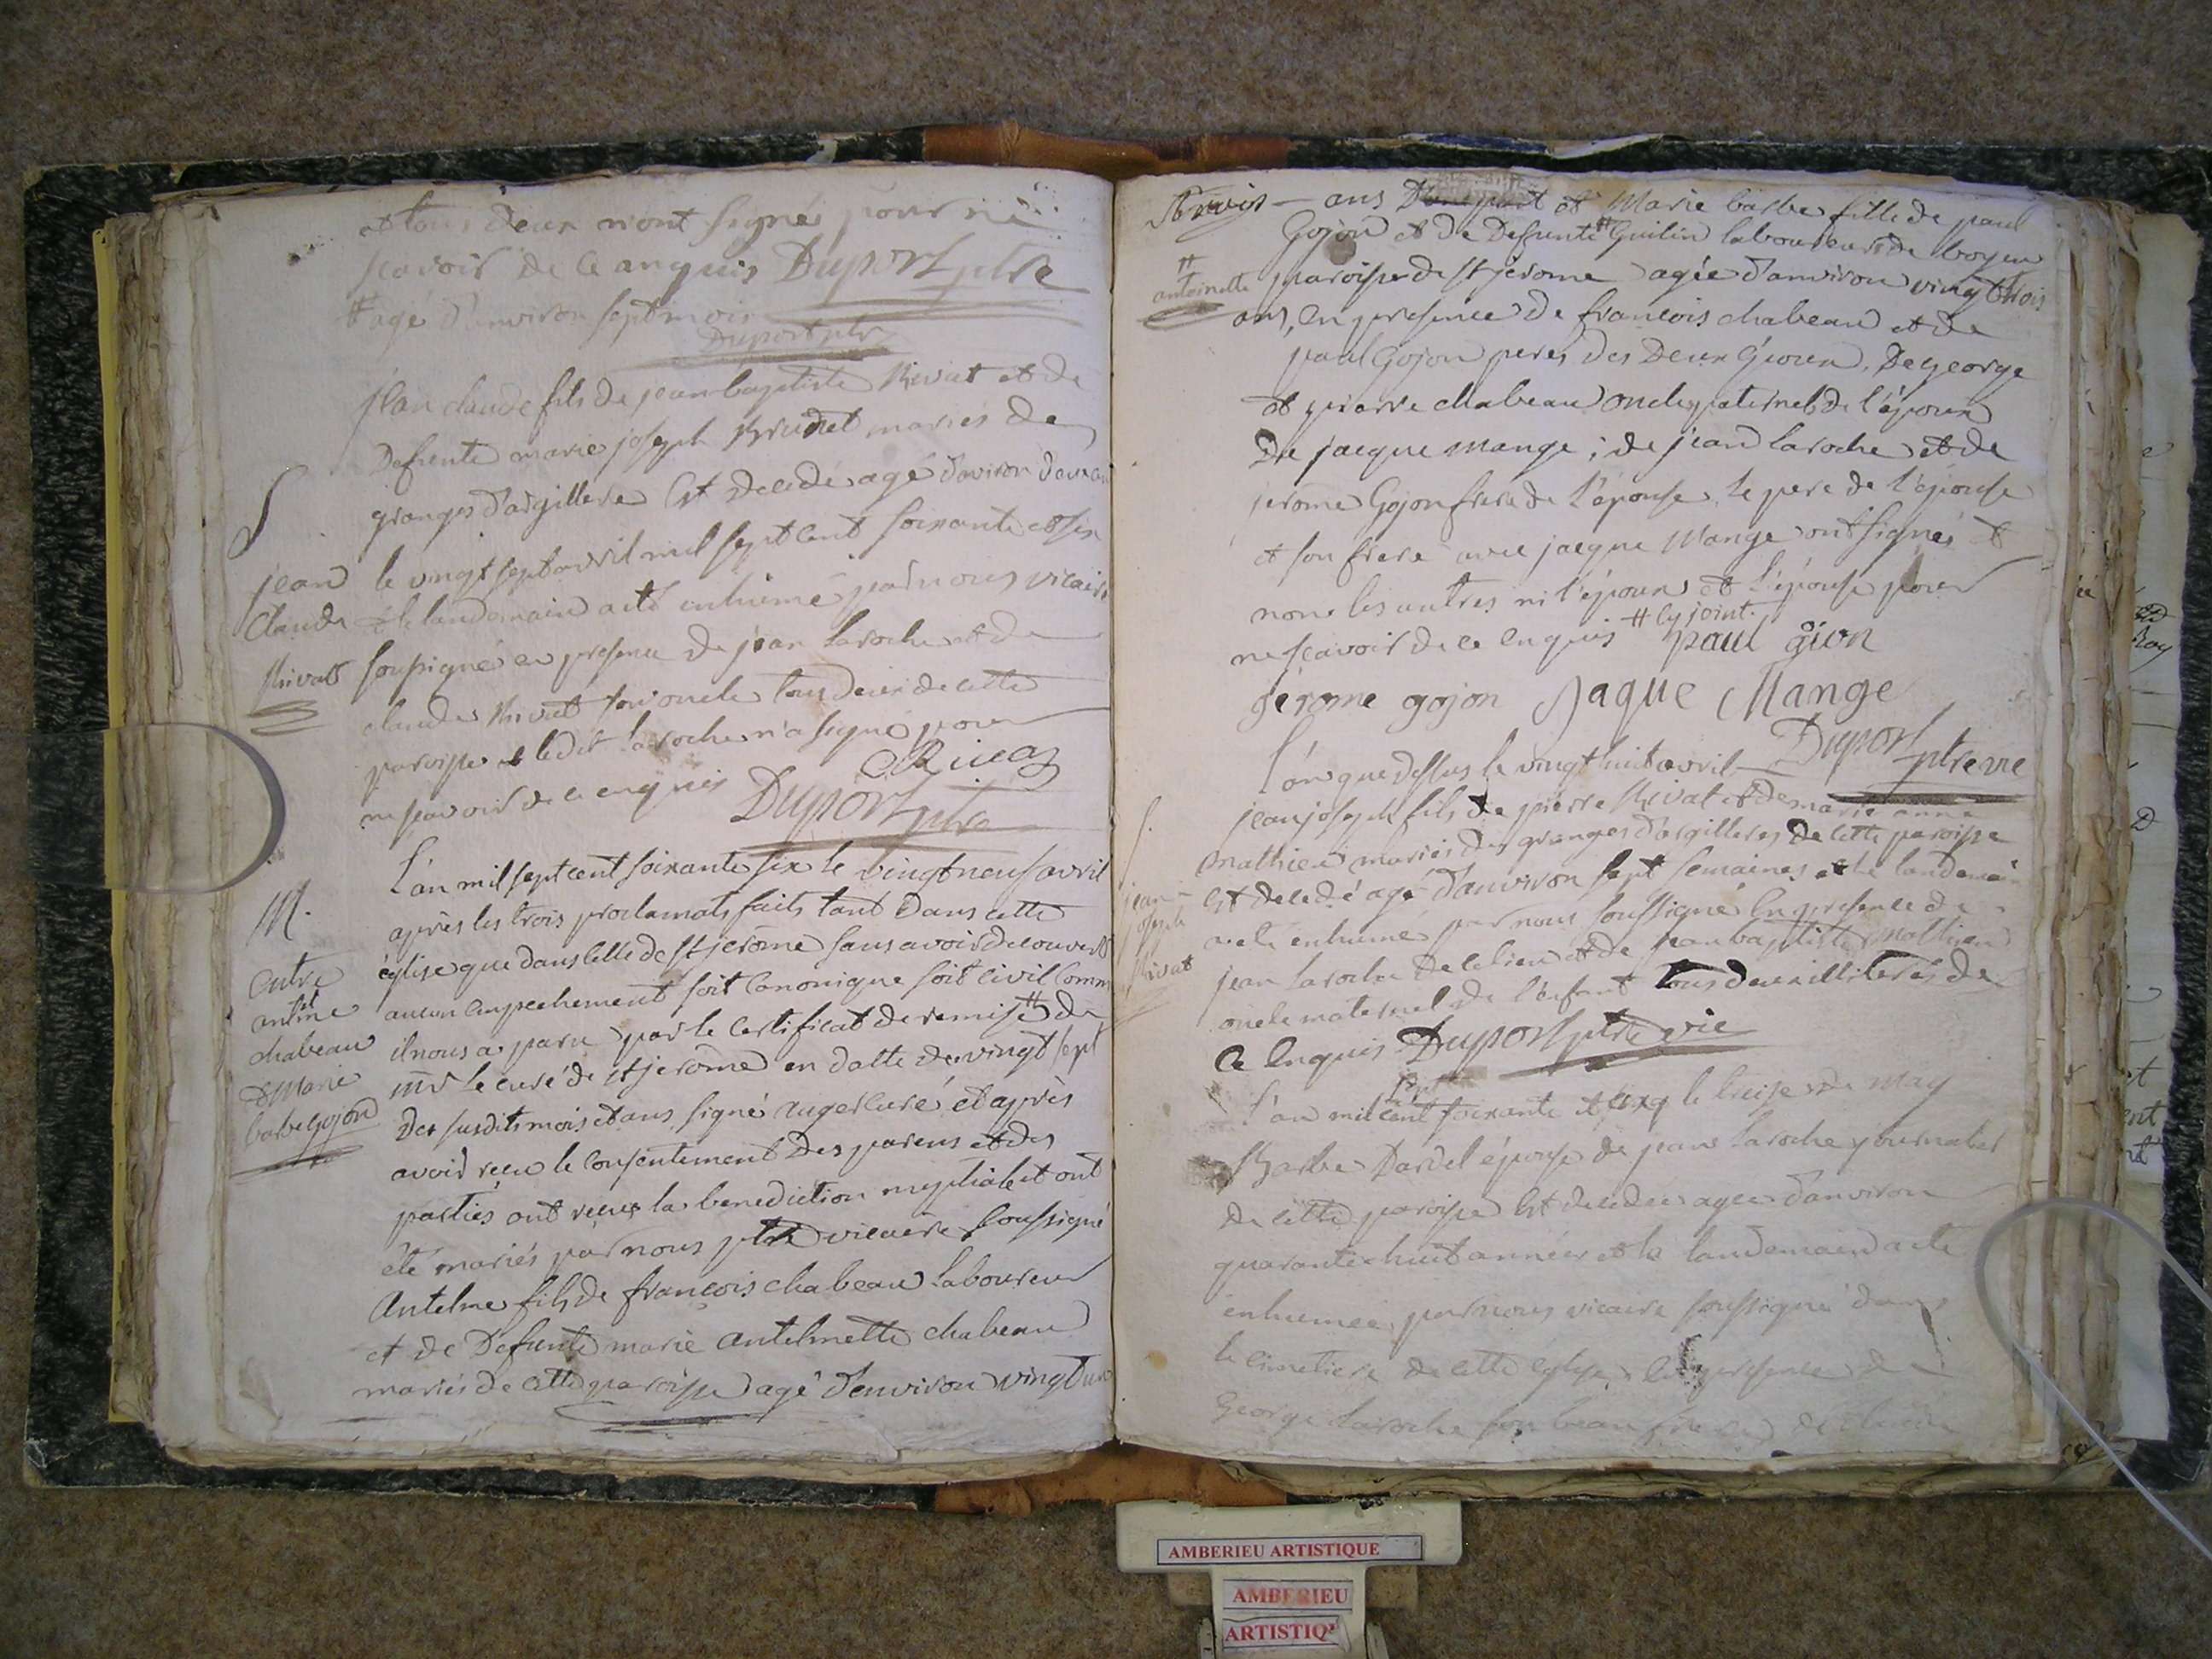 et tous deux n'ont signé pour ne
scavoir de ce anquis Duport ptre
# agé d'anviron sept mois
Duport ptr
jean claude fils de jean baptiste Rivat et de
Defunte marie joseph Brudet mariés de
granges d'argillere est decedé agé d'aviron deux an
jean le vingt sept avril mil sept cent soixante et six
Claude et le landemain a eté enhumé par nous vicaire
Rivat soussigné en presence de jean laroche et de
claude Rivat son oncle tous deux de cette
paroisse et ledit laroche n'a signé pour
ne scavoir de ce enquis CRivaz
Duport ptre
L'an mil sept cent soixante six le vingt neuf avril
M. après les trois proclamats faits tant dans cette
entre église que dans celle de st jerôme sans avoir decouvert
antme aucun empechement soit canonique soit civil comm
chabeau il nous a paru par le certificat de remise # de
& Marie mr le curé de st jerôme en datte de vingt sept
barbe Gojon des susdits mois et ans signé auger curé et après
avoir recu le consentement des parens et des
parties ont recus la benediction nuptiale et ont
été mariés par nous ptre vicaire soussigné
Antelme fils de francois chabeau laboureur
et de Defunte marie antelmette chabeau
mariés de cette paroisse agé d'environ vingt un
ans et Marie barbe fille de paul
Gojon et de Defunte # Guilin laboureurs de boyeu
# antoinette paroisse de st jerome agée d'anviron vingt trois
ans, en presence de francois chabeau et de
paul Gojon peres des deux époux, de george
et pierre chabeau oncles paternels de l'époux
de jacque mange; de jean laroche et de
jerome Gojon frere de l'épouse, le pere de l'épouse
et son frere avec jacque Mange ont signés et
non les autres ni l'époux et l'épouse pour
ne scavoir de ce enquis # cy joint.
paul gion
jérome gojon Jaque Mange
Duport ptre vic
l'an que dessus le vingt huit avril
jean joseph fils de pierre Rivat et de marie anne
mathieu mariés des granges d'argilleres de cette paroisse
jean est decedé agé d'anviron sept semaines et le landemain
joseph a eté enhumé par nous soussigné en presence de
Rivat jean laroche de ce lieu et de jean baptiste mathieu
oncle maternel de l'enfant tous deux illiterés de
ce enquis Duport ptre vic
L'an mil sept cent soixante et cinq le treise de may
Barbe Dardel épouse de jean laroche journalier
de cette paroisse est decedee agee d'anviron
quarante huit années et le landemain a eté
enhumée par nous vicaire soussigné dans
le cimetiere de cette eglise, en presence de
George laroche son beau frere
AMBERIEU ARTISTIQUE
AMBERIEU
ARTISTIQ